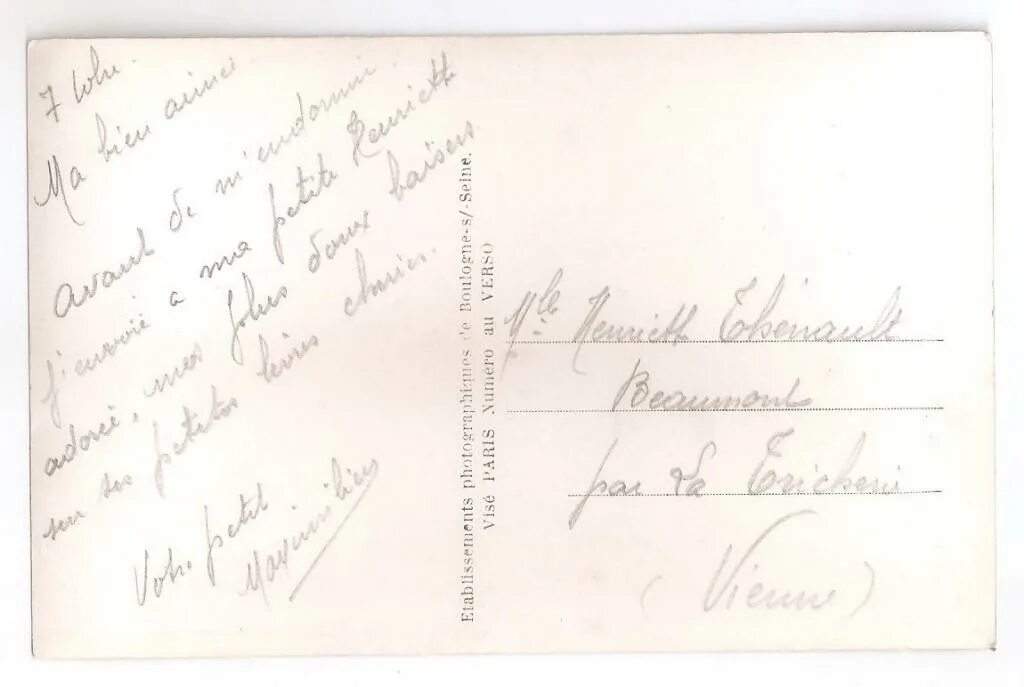 7
Ma bien aimée
avant de m'endormir
j'envoie a ma petite Henriette
adorée, mes plus doux baisers
sur ses petites lèvres chéries.
Votre petit
Maximilien
Etablissements photographiques de Boulogne-s/-Seine.
Visé PARIS Numéro au VERSO
Mlle Henriette Thénault
Beaumont
par La Tricherie
(Vienne)